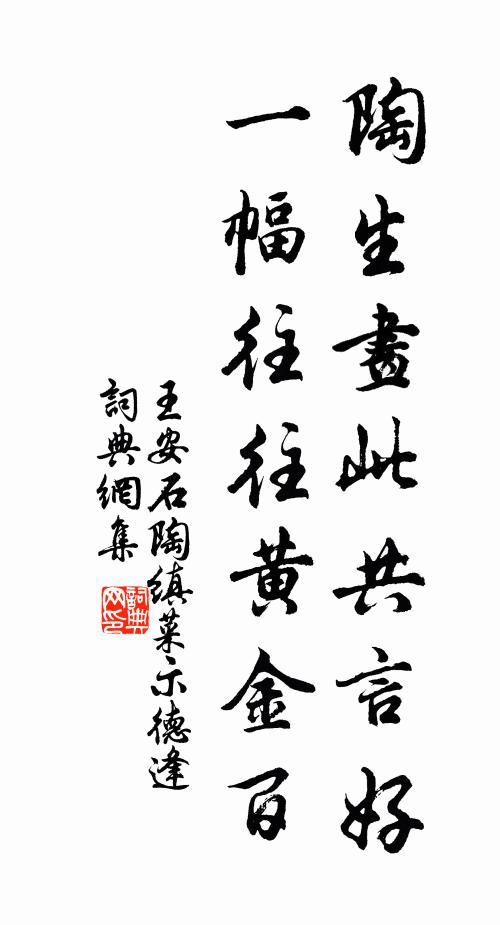 陶生畫此共言好
一幅往往黃金百
王安石陶縝菜示德逢
詞典網集
詞典
网印